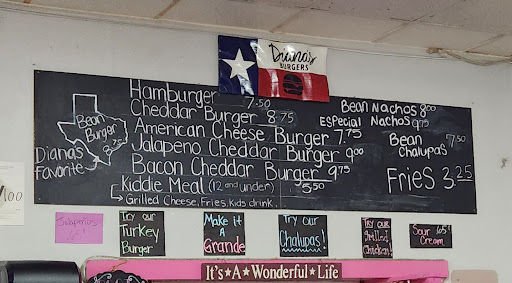 Diana's
BURGERS
Hamburger 7.50
Cheddar Burger 8.75
American Cheese Burger 7.75
Jalapeño Cheddar Burger 9.00
Bacon Cheddar Burger 9.75
Kiddie Meal (12 and under) 5.50
Grilled Cheese, Fries, kids drink.
Bean Nachos 8.00
Especial Nachos 9.75
Bean 7.50
Chalupas
Fries 3.25
Bean
Burger
8.50
Diana's
Favorite
Jalapeños
.65¢
Try our
Turkey
Burger
Make it
A
Grande
Try our
Chalupas!
Try our
grilled
Chicken!
Sour .65¢
Cream
It's★A★Wonderful★Life